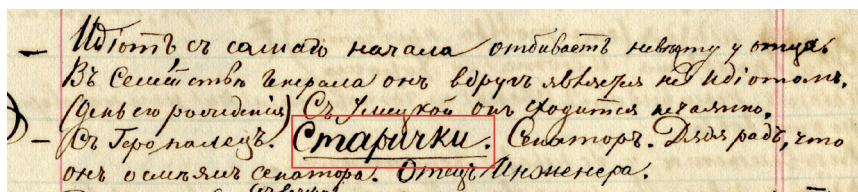 — Идіотъ съ самаго начала отбиваетъ невѣсту у отца.
Въ семействѣ Генерала онъ вдругъ является не Идіотомъ.
(день его рожденія) Съ Умецкой онъ сходится нечаянно.
— Съ Геро палецъ. Старички. Сенаторъ. Дядя радъ, что
онъ осмѣялъ сенатора. Отецъ Инженера.